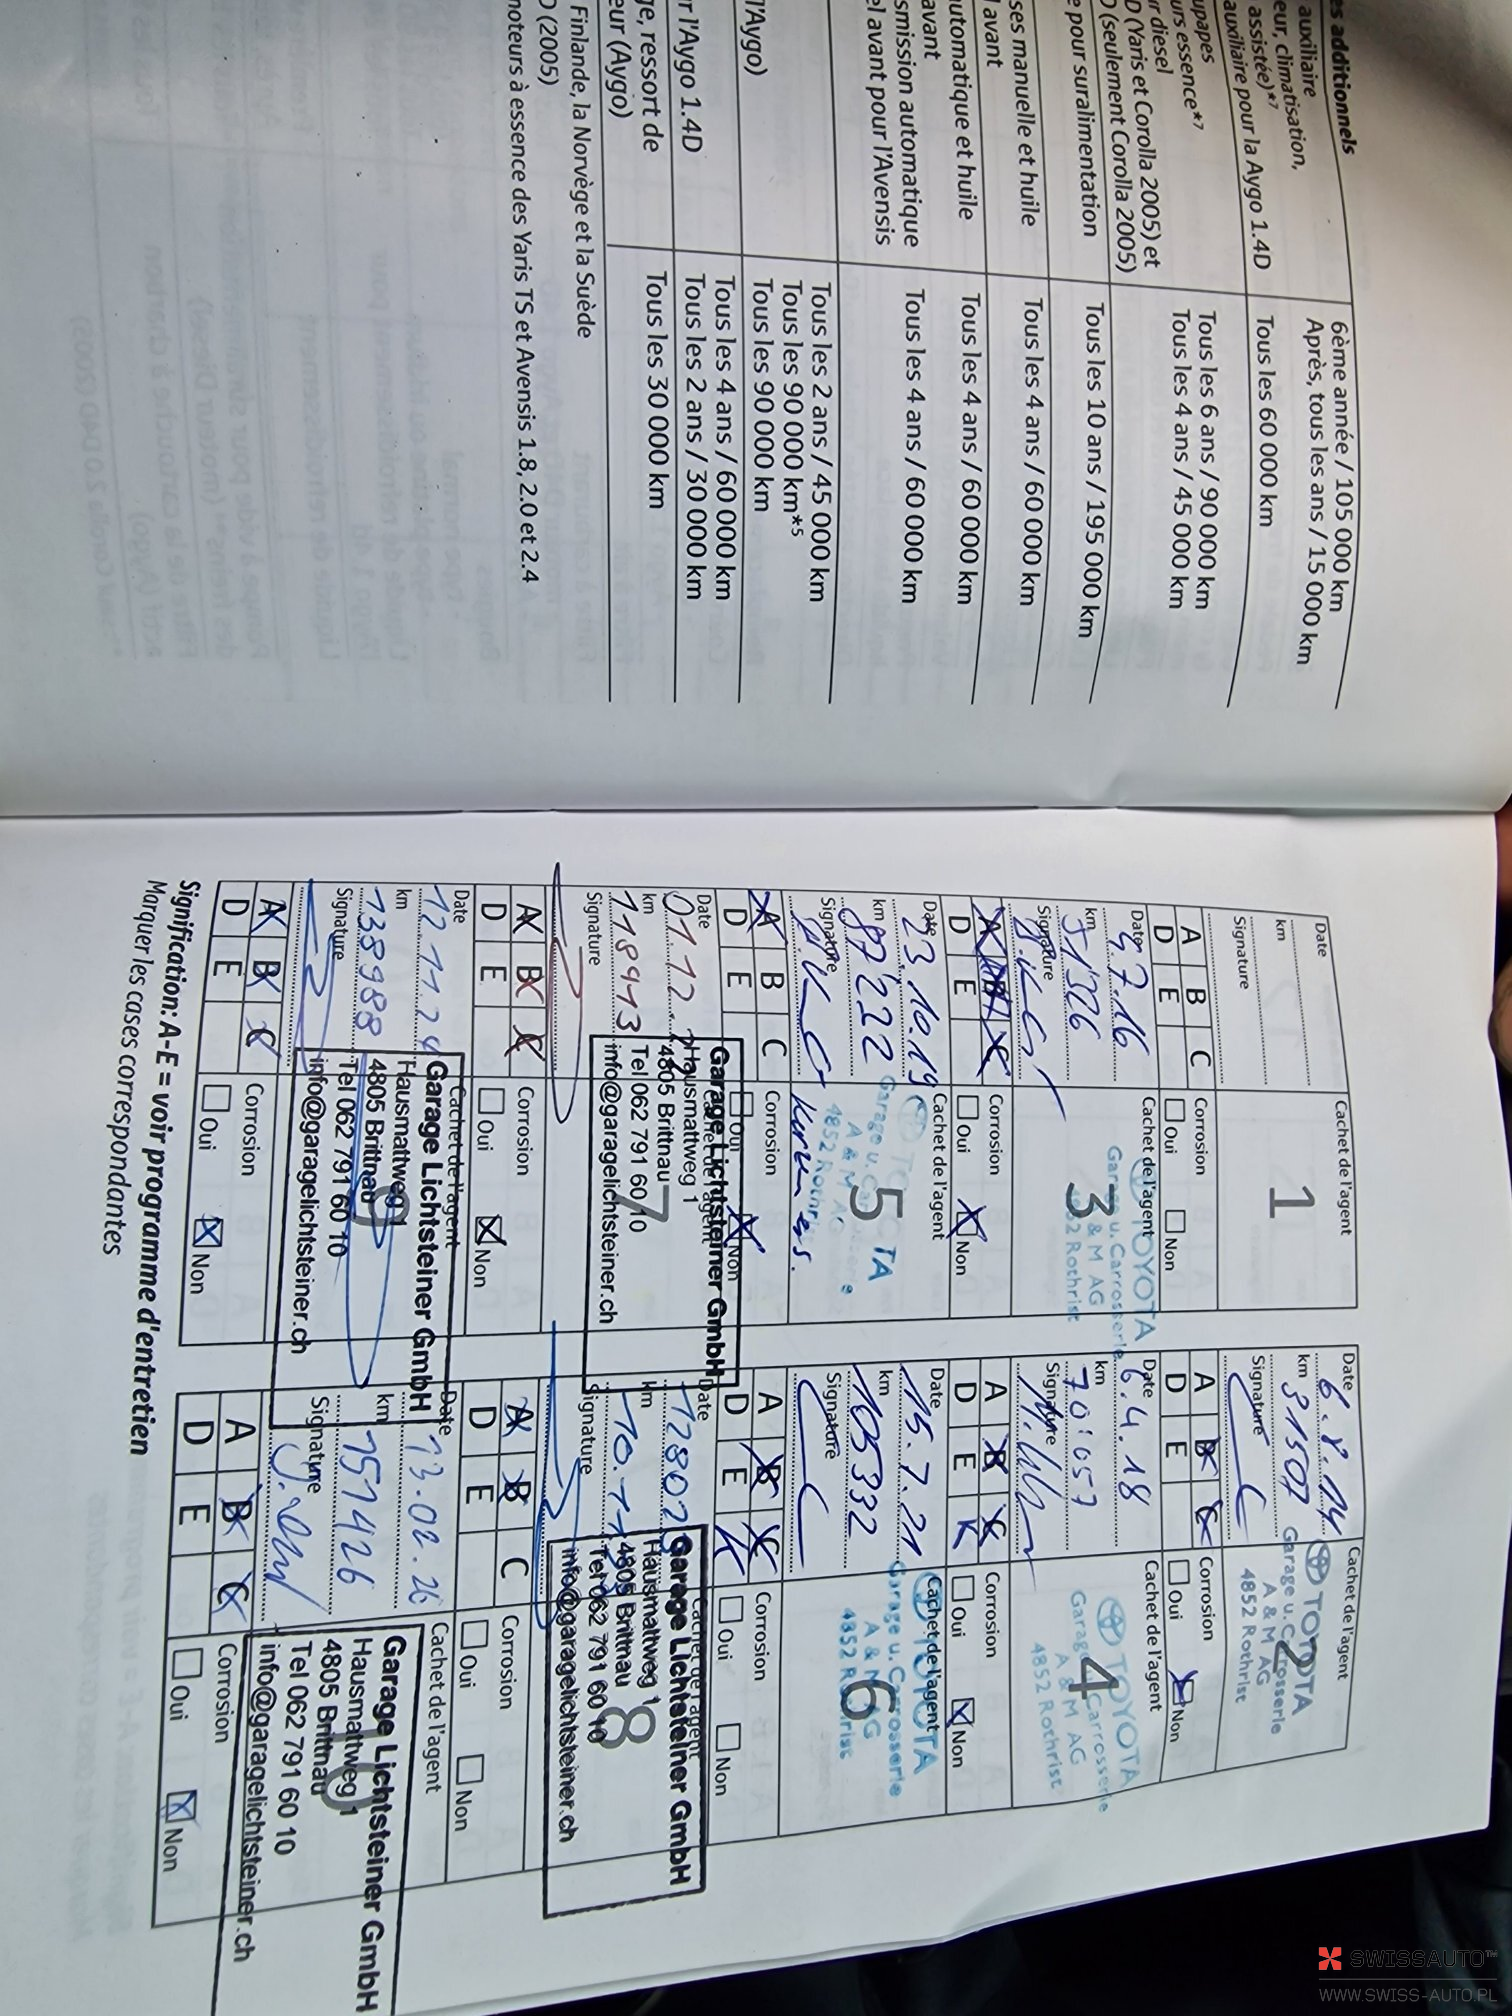 es additionnels
auxiliaire
eur, climatisation,
assistée)*⁷
auxiliaire pour la Aygo 1.4D
upapes
urs essence*⁷
ur diesel
D (Yaris et Corolla 2005) et
D (seulement Corolla 2005)
e pour suralimentation
ses manuelle et huile
l avant
utomatique et huile
avant
smission automatique
el avant pour l'Avensis
l'Aygo)
ur l'Aygo 1.4D
ge, ressort de
eur (Aygo)
6ème année / 105 000 km
Après, tous les ans / 15 000 km
Tous les 60 000 km
Tous les 6 ans / 90 000 km
Tous les 4 ans / 45 000 km
Tous les 10 ans / 195 000 km
Tous les 4 ans / 60 000 km
Tous les 4 ans / 60 000 km
Tous les 4 ans / 60 000 km
Tous les 2 ans / 45 000 km
Tous les 90 000 km*⁵
Tous les 90 000 km
Tous les 4 ans / 60 000 km
Tous les 2 ans / 30 000 km
Tous les 30 000 km
Finlande, la Norvège et la Suède
D (2005)
moteurs à essence des Yaris TS et Avensis 1.8, 2.0 et 2.4
Date
Cachet de l'agent
km
1
Signature
A B C Corrosion
D E Oui Non
Date 6.8.14
Cachet de l'agent
km 31507
2
Signature
TOYOTA
Garage u. Carrosserie
A & M AG
4852 Rothrist
A B C Corrosion
D E Oui Non
Date 4.7.16
Cachet de l'agent
km 51326
3
Signature
TOYOTA
Garage u. Carrosserie
A & M AG
4852 Rothrist
A B C Corrosion
D E Oui Non
Date 6.4.18
Cachet de l'agent
km 70'057
4
Signature
TOYOTA
Garage u. Carrosserie
A & M AG
4852 Rothrist
A B C Corrosion
D E Oui Non
Date 23.10.19
Cachet de l'agent
km 87'222
5
Signature
TOYOTA
Garage u. Car
A & M AG
4852 Rothris
A B C Corrosion
D E Oui Non
Date 15.7.21
Cachet de l'agent
km 105332
6
Signature
TOYOTA
Garage u. Carrosserie
A & M AG
4852 Rothrist
A B C Corrosion
D E Oui Non
Date 01.12.
Cachet de l'agent
km 118913
7
Signature
Garage Lichtsteiner GmbH
Hausmattweg 1
4805 Brittnau
Tel 062 791 60 10
info@garagelichtsteiner.ch
A B C Corrosion
D E Oui Non
Date
Cachet de l'agent
km
8
Signature
Garage Lichtsteiner GmbH
Hausmattweg 1
4805 Brittnau
Tel 062 791 60 10
info@garagelichtsteiner.ch
A B C Corrosion
D E Oui Non
Date 12.11.24
Cachet de l'agent
km 138988
9
Signature
Garage Lichtsteiner GmbH
Hausmattweg 1
4805 Brittnau
Tel 062 791 60 10
info@garagelichtsteiner.ch
A B C Corrosion
D E Oui Non
Date 13.02.26
Cachet de l'agent
km 151426
10
Signature
Garage Lichtsteiner GmbH
Hausmattweg 1
4805 Brittnau
Tel 062 791 60 10
info@garagelichtsteiner.ch
A B C Corrosion
D E Oui Non
Signification: A-E = voir programme d'entretien
Marquer les cases correspondantes
SWISSAUTO™
WWW.SWISS-AUTO.PL